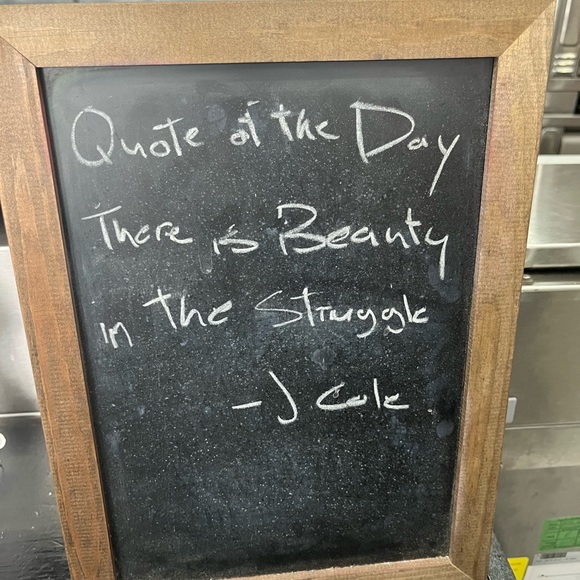 Quote of the Day
There is Beauty
in the Struggle
- J Cole